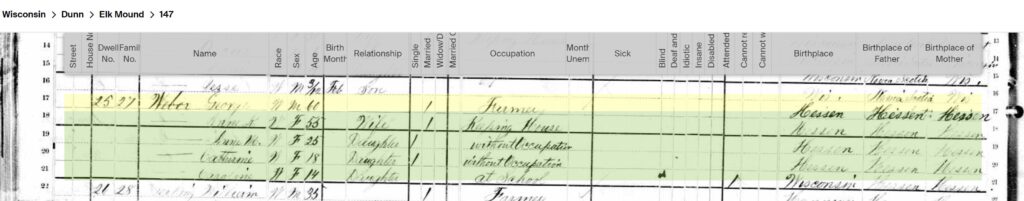 Wisconsin > Dunn > Elk Mound > 147
Street House N Dwell No. Famil No. Name Race Sex Age Birth Month Relationship Single Married Widow/D Married C Occupation Month Unem Sick Blind Deaf and Idiotic Insane Disabled Attended Cannot re Cannot w Birthplace Birthplace of Father Birthplace of Mother
14 13
15
16 Jesse W M Feb Son Wisconsin Nova Scotia Wis
17 25 27 Weber George W M 60 1 Farmer Hessen Hessen Hessen
18 W F 55 Wife 1 Keeping House Hessen Hessen Hessen
19 W F 25 Daughter without Occupation Hessen Hessen Hessen
20 Catherine W F 18 Daughter without Occupation Hessen Hessen Hessen
21 W F 14 Daughter at School 1 Wisconsin Hessen Hessen
22 28 William W M 35 1 Farmer